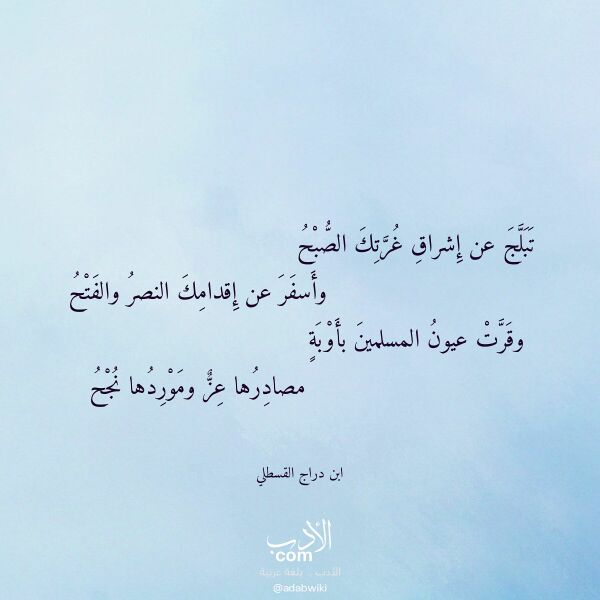 تَبَلَّجَ عن إِشراقِ غُرَّتِكَ الصُّبْحُ
وأَسفَرَ عن إِقدامِكَ النصرُ والفَتْحُ
وقَرَّتْ عيونُ المسلمينَ بأَوْبَةٍ
مصادِرُها عِزٌّ ومَوْرِدُها نُجْحُ
ابن دراج القسطلي
الأدب
com
الأدب .. بلغة عربية
@adabwiki